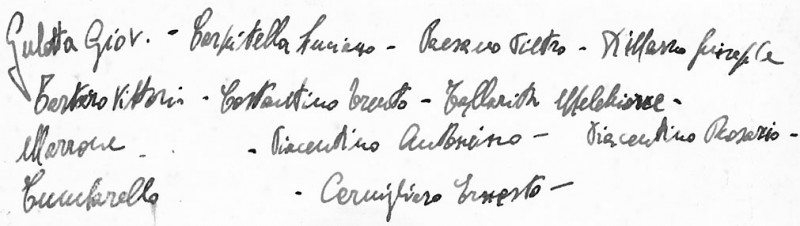 Gulotta Giov. - Carpitella Luciano - Paesano Pietro - Killarro Giuseppe
Tartaro Vittorio - Costantino Trento - Tallarita Melchiorre -
Marrone - Piacentino Antonino - Piacentino Rosario -
Cuntarello - Cernigliaro Ernesto -